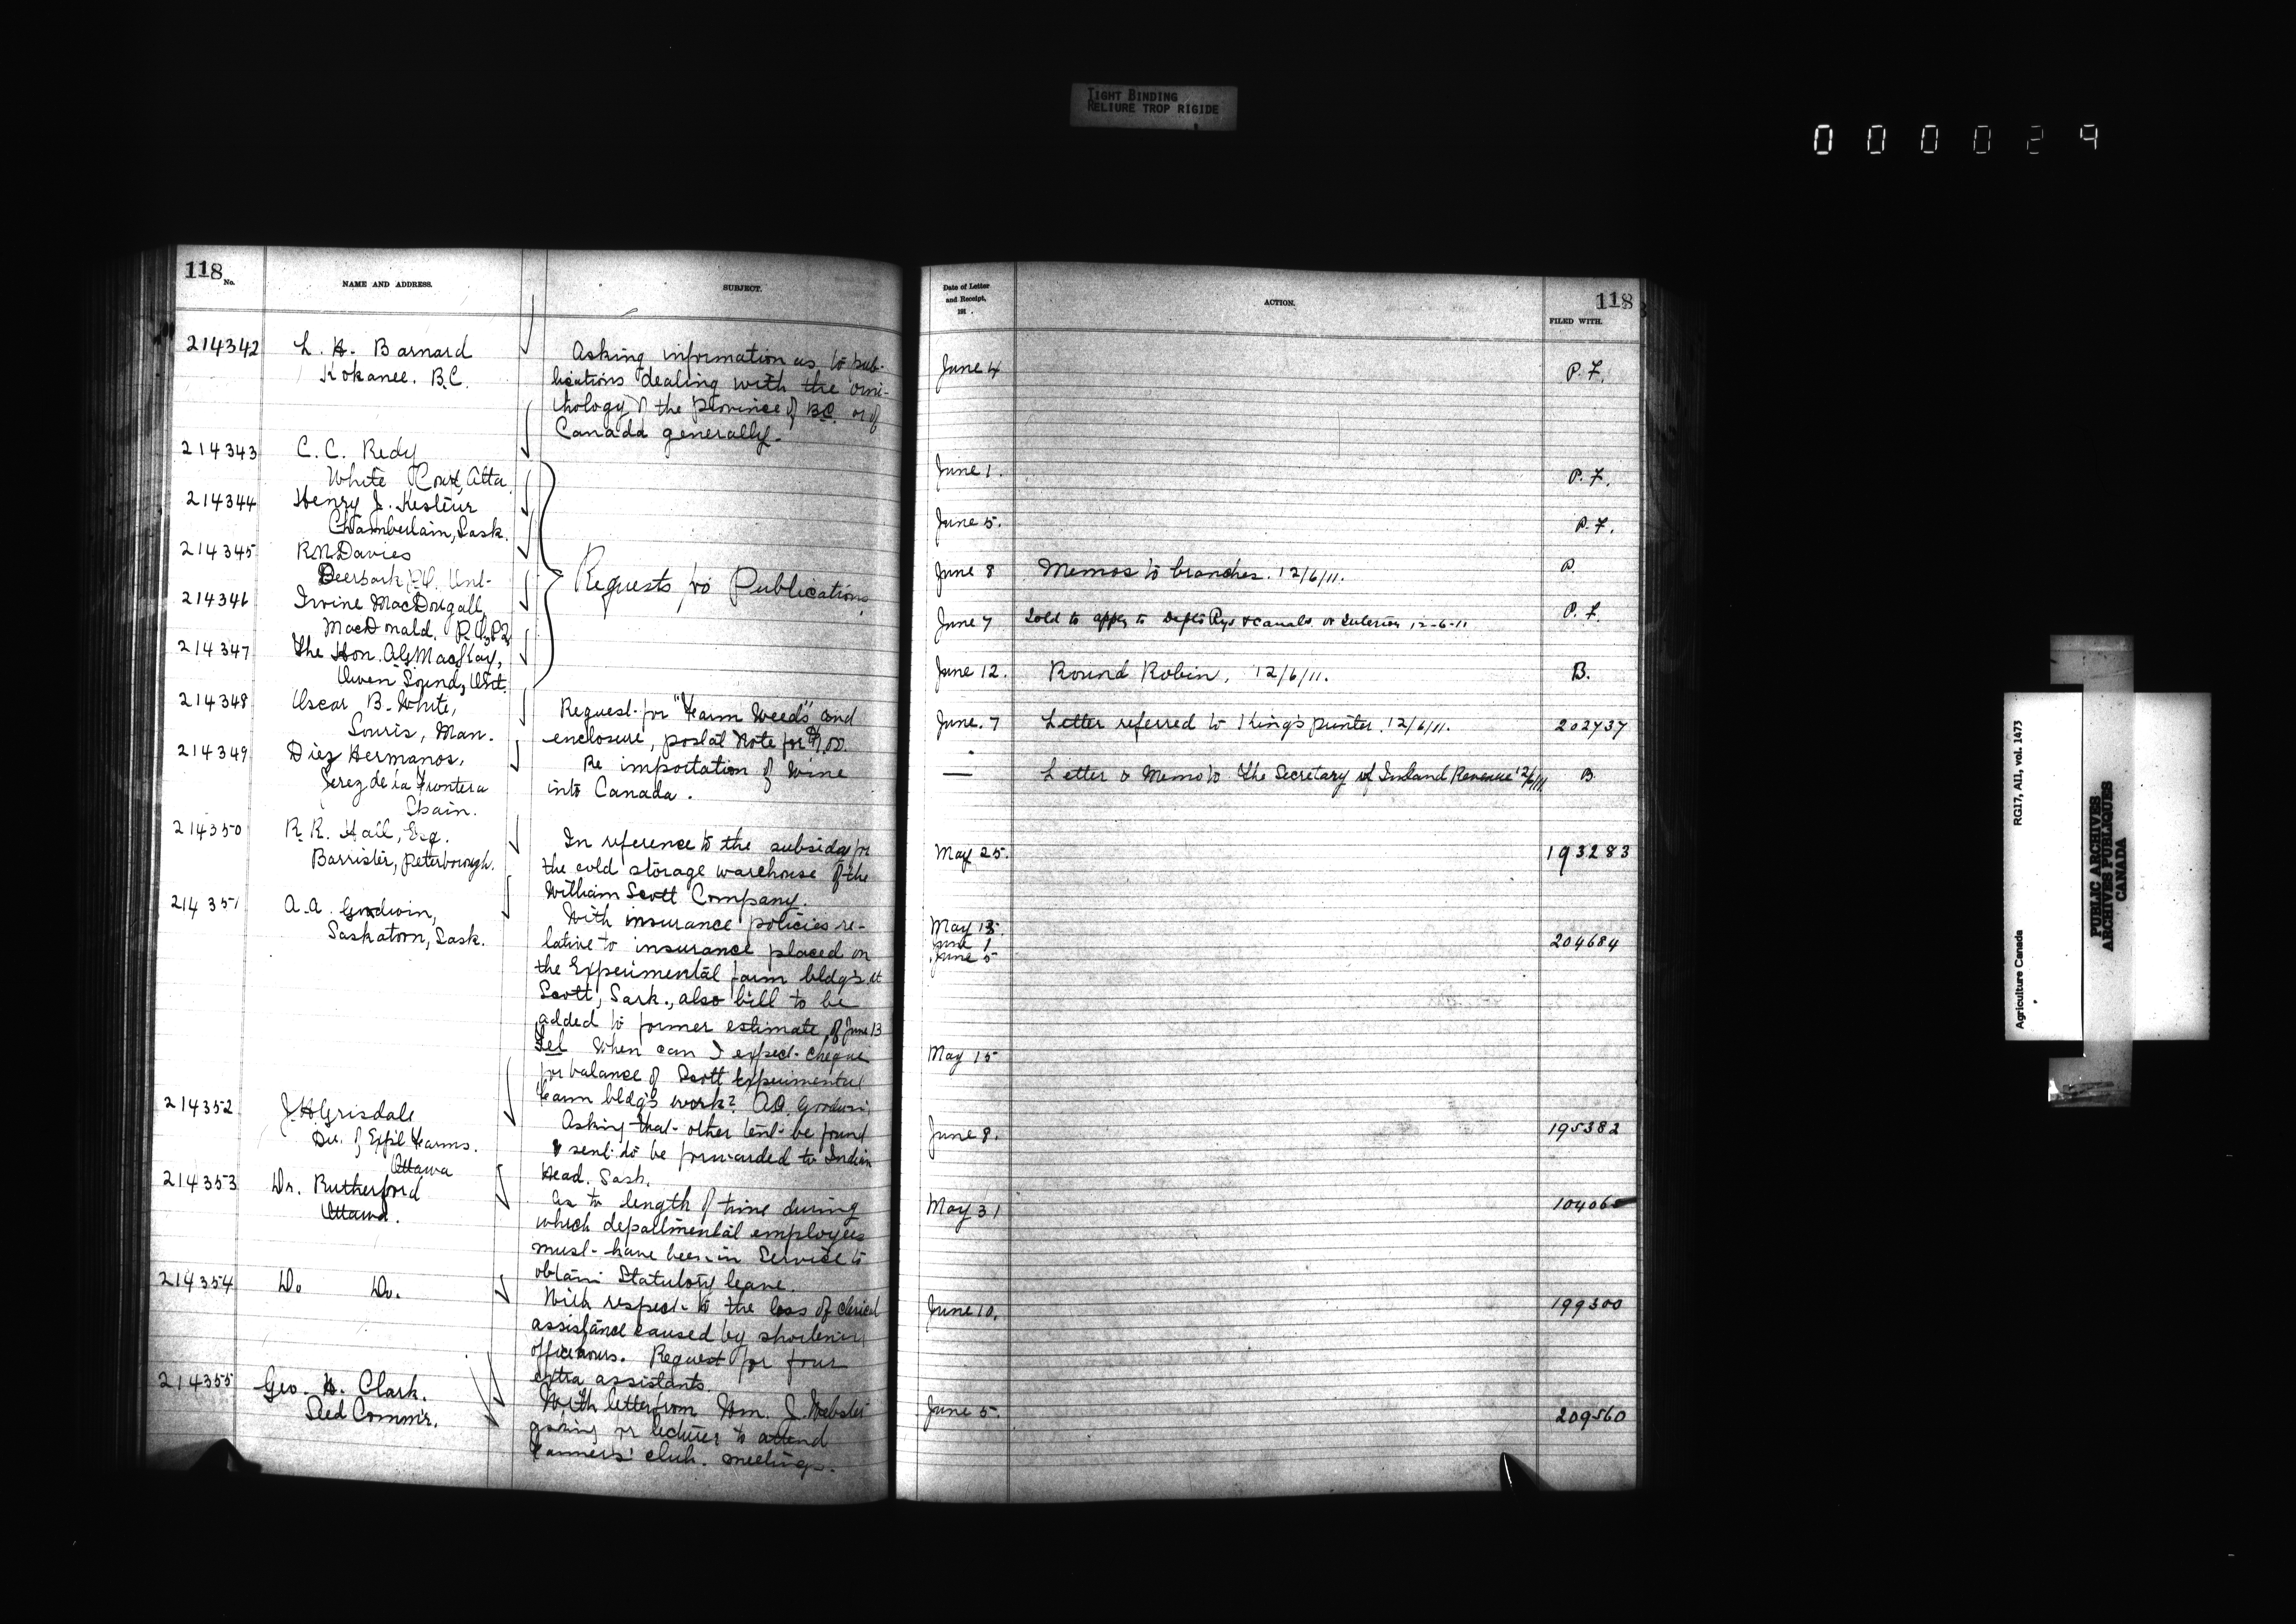 TIGHT BINDING
RELIURE TROP RIGIDE
000029
118
No.
NAME AND ADDRESS.
SUBJECT.
214342
L. H. Barnard
Kokanee. B.C.
Asking information as to pub-
lications dealing with the orni-
thology of the province of B.C. or of
Canada generally.
214343
C. C. Redy
White Court, Alta.
214344
Henry J.
Chamberlain, Sask.
214345
R.N. Davies
P.O. Ont.
214346
Irvine MacDougall,
MacDonald. P.O., P.Q.
214347
The Hon. A.G. MacKay,
Owen Sound, Ont.
Requests for Publications
214348
Oscar B. White,
Souris, Man.
Request for "Farm Weeds" and
enclosure, postal note for $1.00.
214349
Diez Hermanos,
Jerez de la Frontera
Spain.
Re importation of wine
into Canada.
214350
R. R. Hall, Esq.
Barrister, Peterborough.
In reference to the subsidy for
the cold storage warehouse of the
William Scott Company.
214351
A.A. Goodwin,
Saskatoon, Sask.
With insurance policies re-
lative to insurance placed on
the Experimental farm bldg's at
Scott, Sask., also bill to be
added to former estimate of June 13
Tel When can I expect cheque
for balance of Scott Experimental
Farm bldg's work? A.A. Goodwin
214352
J.H. Grisdale
Dir. of Exp'l Farms.
Ottawa
Asking that other tent be found
& sent to be forwarded to Indian
Head. Sask.
214353
Dr. Rutherford
Ottawa.
As to length of time during
which departmental employees
must have been in Service to
obtain Statutory leave.
214354
Do Do.
With respect to the loss of clerical
assistance caused by shortening
office hours. Request for four
extra assistants.
214355
Geo. H. Clark.
Seed Comm'r.
With letter from Wm. J. Webster
asking for lecturer to attend
Farmers' club. meetings.
Date of Letter
and Receipt,
191 .
ACTION.
118
FILED WITH.
June 4
P. F.
June 1.
P. F.
June 5.
P. F.
June 8 Memos to branches. 12/6/11.
P.
June 7 Told to apply to Depts Rys & Canals or Interior 12-6-11
P. F.
June 12. Round Robin, 12/6/11.
B.
June. 7 Letter referred to King's printer. 12/6/11.
202737
— Letter & Memo to the Secretary of Inland Revenue 12/6/11
B
May 25.
193283
May 13.
June 1
June 5
204684
May 15
June 8.
195382
May 31
June 10.
199300
June 5.
209560
Agriculture Canada
RG17, AII, vol. 1473
PUBLIC ARCHIVES
ARCHIVES PUBLIQUES
CANADA